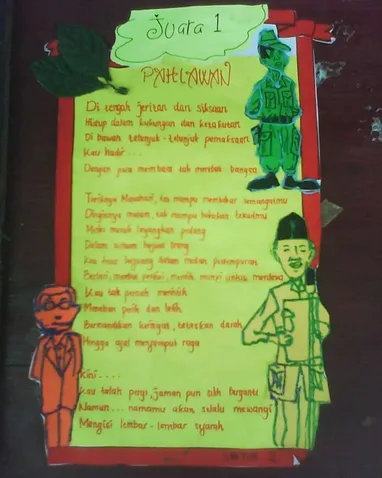 Juara 1
PAHLAWAN
Di tengah jeritan dan siksaan
Hidup dalam kekangan dan ketakutan
Di bawah telunjuk - telunjuk pemaksaan
Kau hadir ....
Dengan jiwa membara tuk merdeka bangsa
Teriknya Matahari, tak mampu membakar semangatmu
Dinginnya malam, tak mampu bekukan tekadmu
Meski musuh layangkan pedang
Dalam perang
Kau terus berjuang dalam medan pertempuran
Berlari, untuk merdeka
Kau tak pernah merintih
Menahan perih dan letih
Bermandikan keringat, teteskan darah
Hingga ajal menjemput raga
Kini ....
Kau telah pergi, jaman pun tlah berganti
Namun ... namamu akan selalu mewangi
Mengisi lembar - lembar sejarah